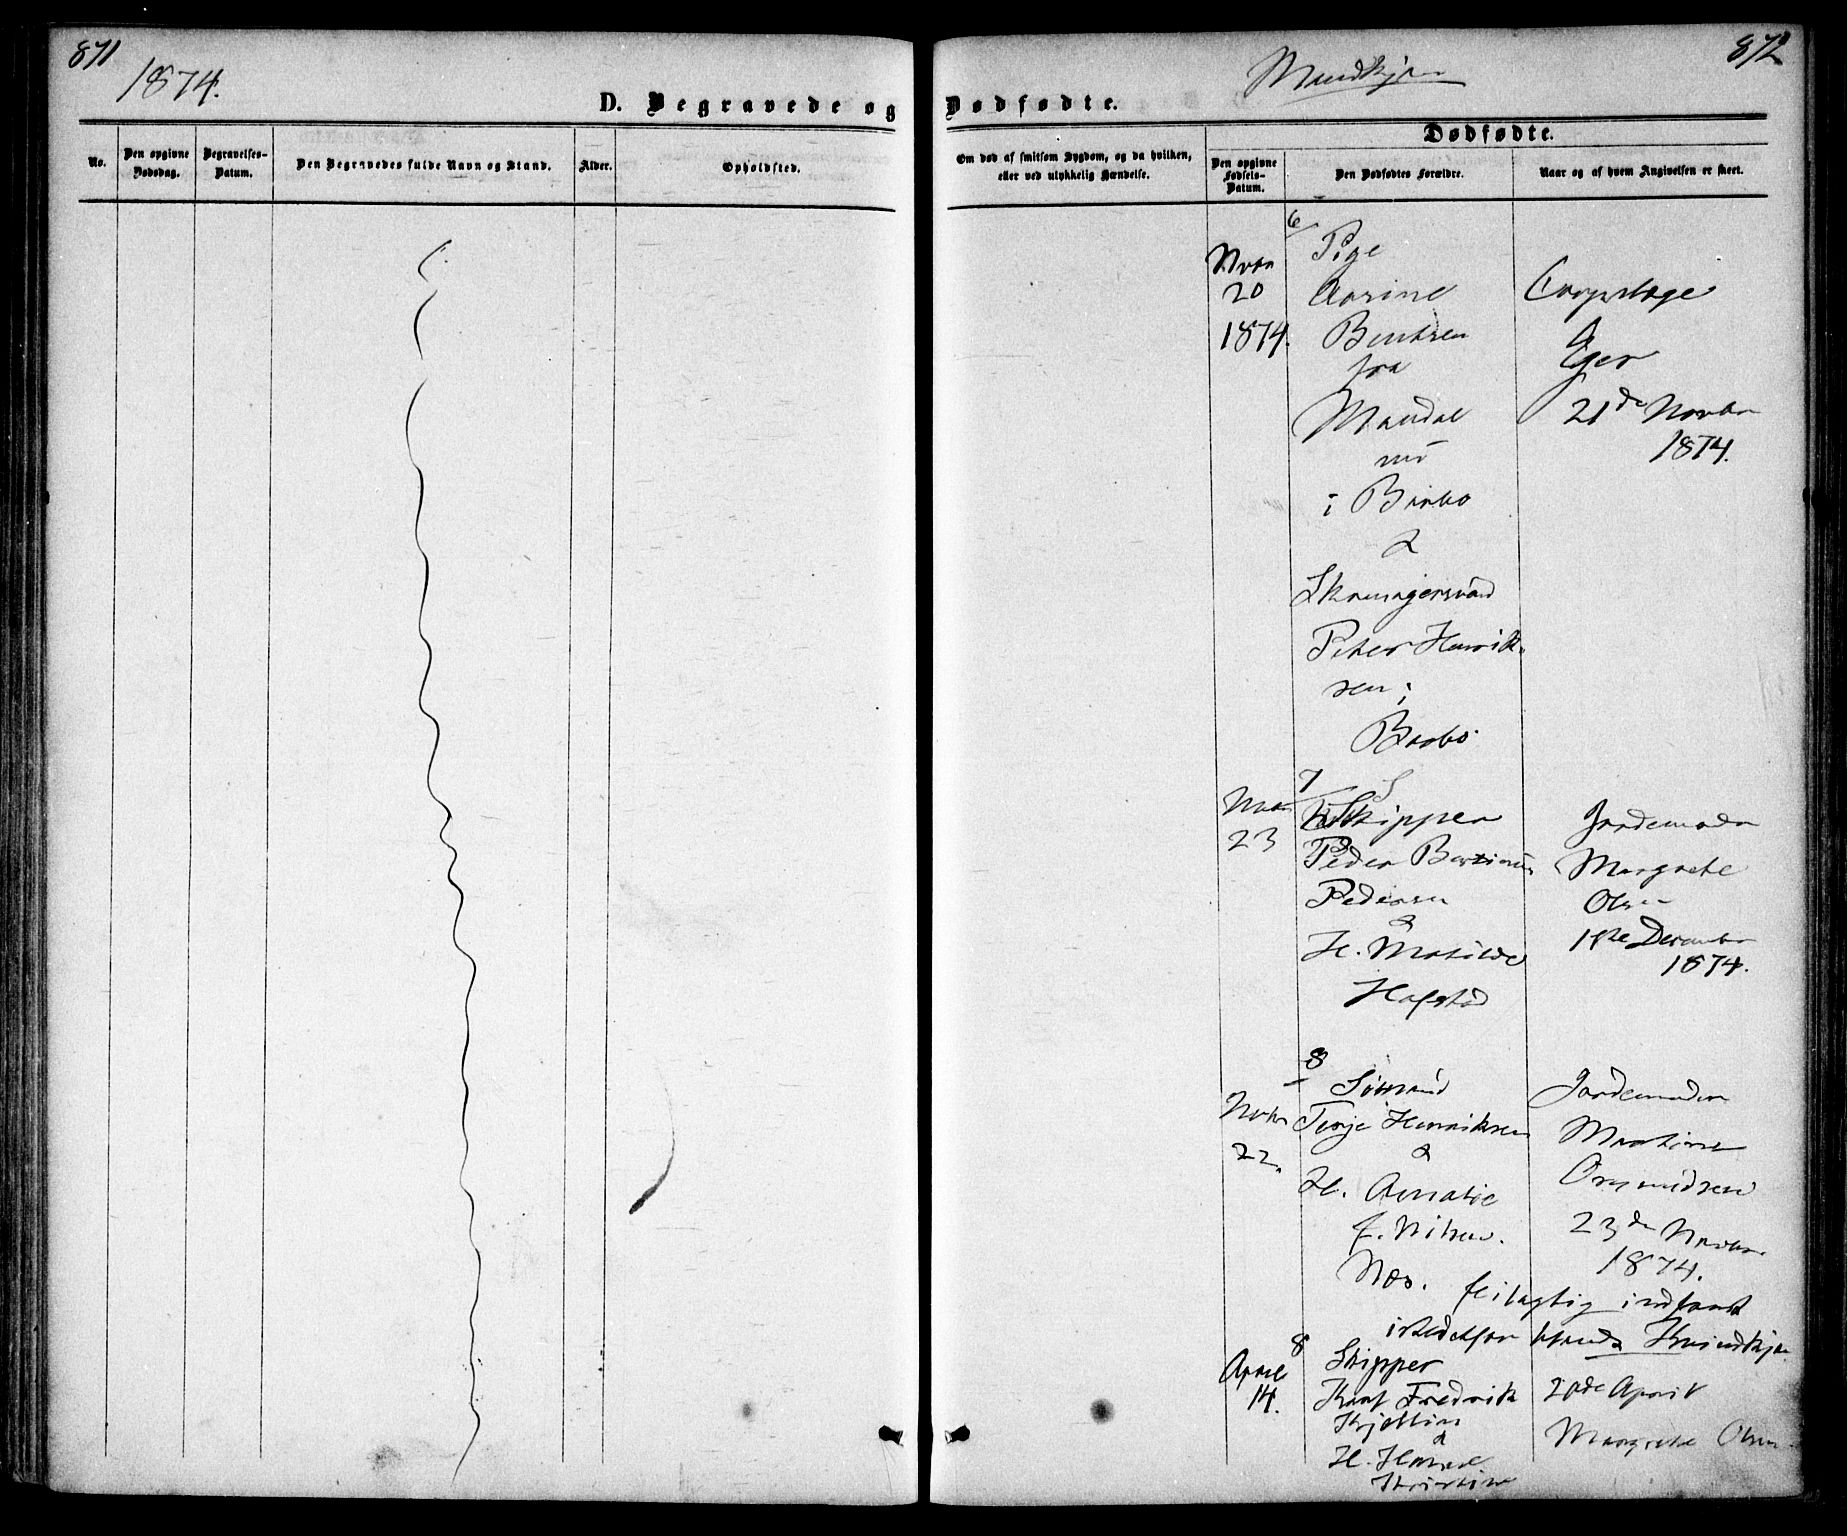 871
1874.
D. Begravede og
No.
Den opgivne Dødsdag.
Begravelses-Datum.
Den Begravedes fulde Navn og Stand.
Alder.
Opholdsted.
Mandkjøn
872
Dødfødte.
Om død af smitsom Sygdom, og da hvilken, eller ved ulykkelig Hændelse.
Dødfødte.
Den opgivne Fødsels-Datum.
Den Dødfødtes Forældre.
Naar og af hvem Angivelsen er skeet.
6
Pige
Nvbr
20
1874.
Aasine
Bentsen
fra
Mandal
nu
i Barbo
&
Skomagersvend
Peter Henrik-
sen i
Barbo.
Corpslæge
Eger
21de Novbr
1874.
7
Nvbr
23
Skipper
Peder
Pedersen
&
H. Matilde
Hafstad
Jordemoder
Margrete
Olsen
1ste December
1874.
8
Nvbr
22.
Sømand
Terje Henriksen
&
H. Amalie
f. Nilsen.
Næs.
Jordemoder
Martine
23de Novbr
1874.
feilagtig indført
istedetfor blandt Kvindkjøn
8
April
14.
Skipper
Karl Fredrik
&
H. Hanne
Kristine
20de April
Margrete Olsen